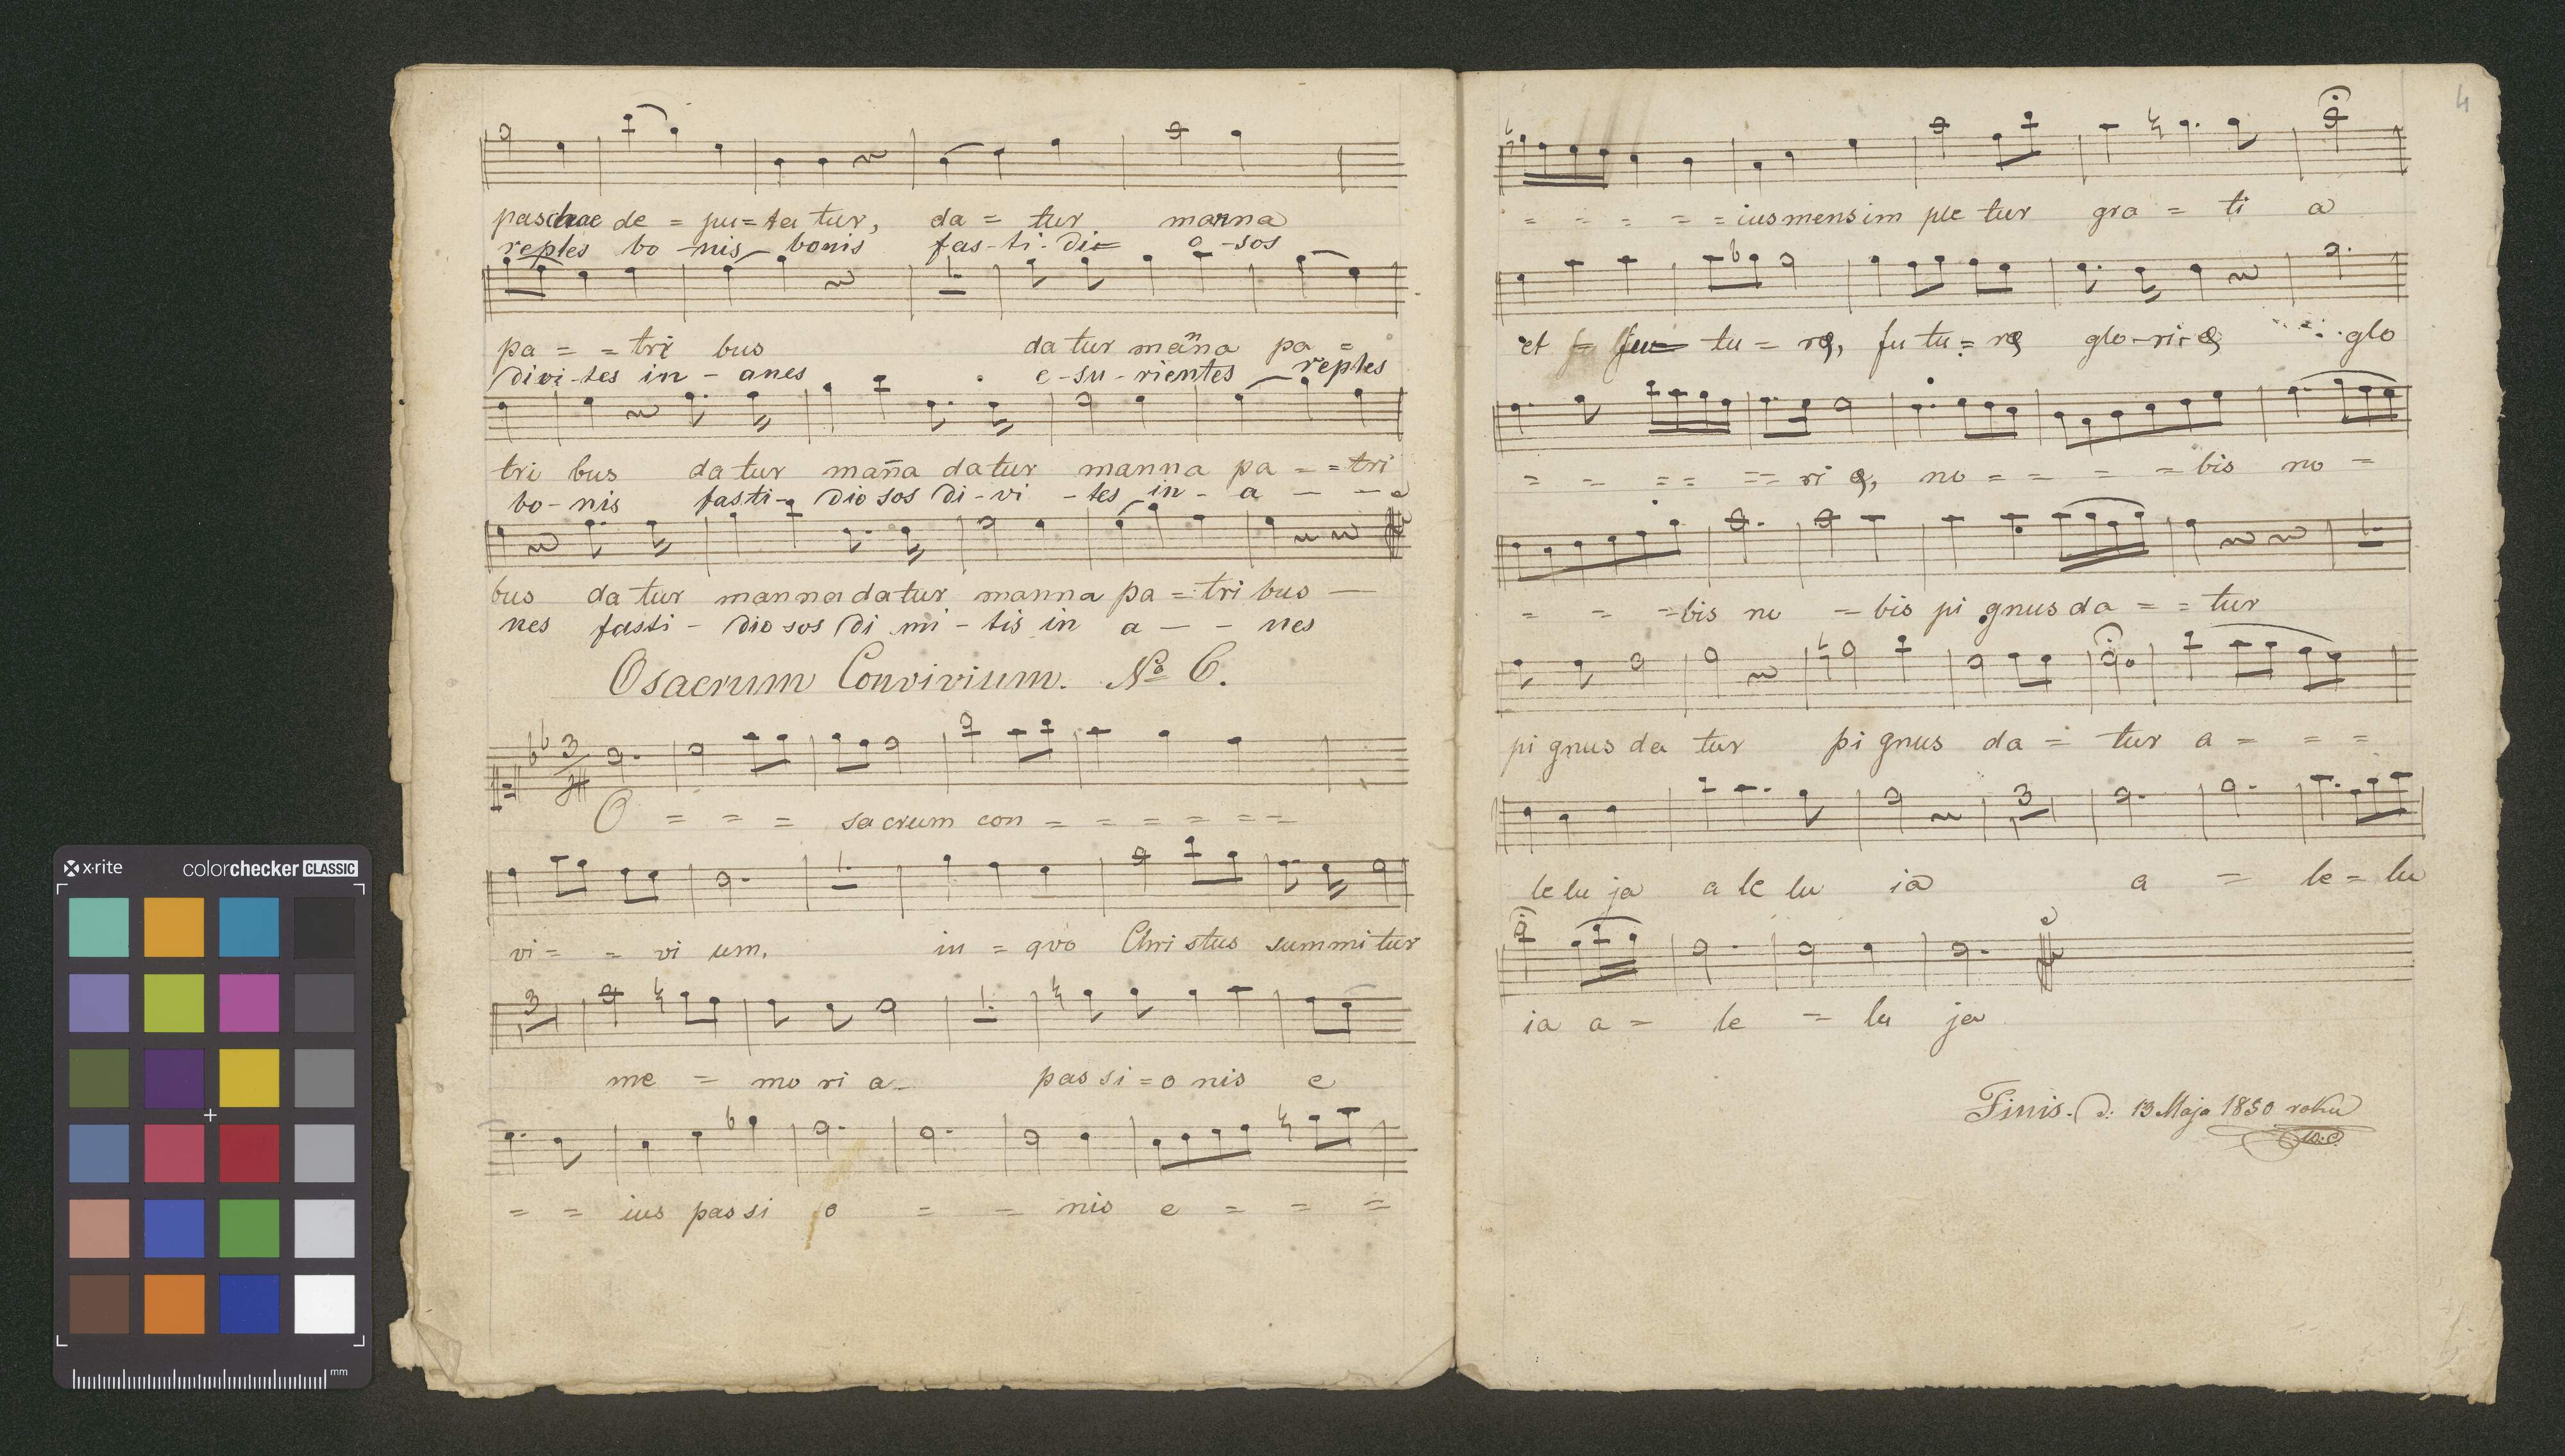 paschae de = pu = ta tur, da = tur manna
reples bo - nis bonis fas - ti - di o - sos
pa = = tri bus da tur mañna pa =
divi - tes in - anes e - su - rientes reples
tri bus da tur maña da tur manna pa = = tri
bo - nis fasti - dio sos di - vi - tes in - a - -
bus da tur manna da tur manna pa = tri bus —
nes fasti - dio sos di mi - tis in a — - nes
O sacrum Convivium. No 6.
3
O = = = sa crum con = = = = = =
vi = = vi um, in = qvo Chri stus summi tur
3
me = mo ri a_ pas si = o nis e
= = ius pas si o = = nis e = = =
4
= = = = = ius mens im ple tur gra = ti a
et tu = rę, fu tu = rę glo - ri - ę glo
= = = = = = ri ę, no = = = = bis no =
= = = bis no = bis pi gnus da = = tur
pi gnus da tur pi gnus da = tur a = = =
3
le lu ja a le lu ia a = le = lu
ia a = le = lu ja
Finis. d: 13 Maja 1850 roku